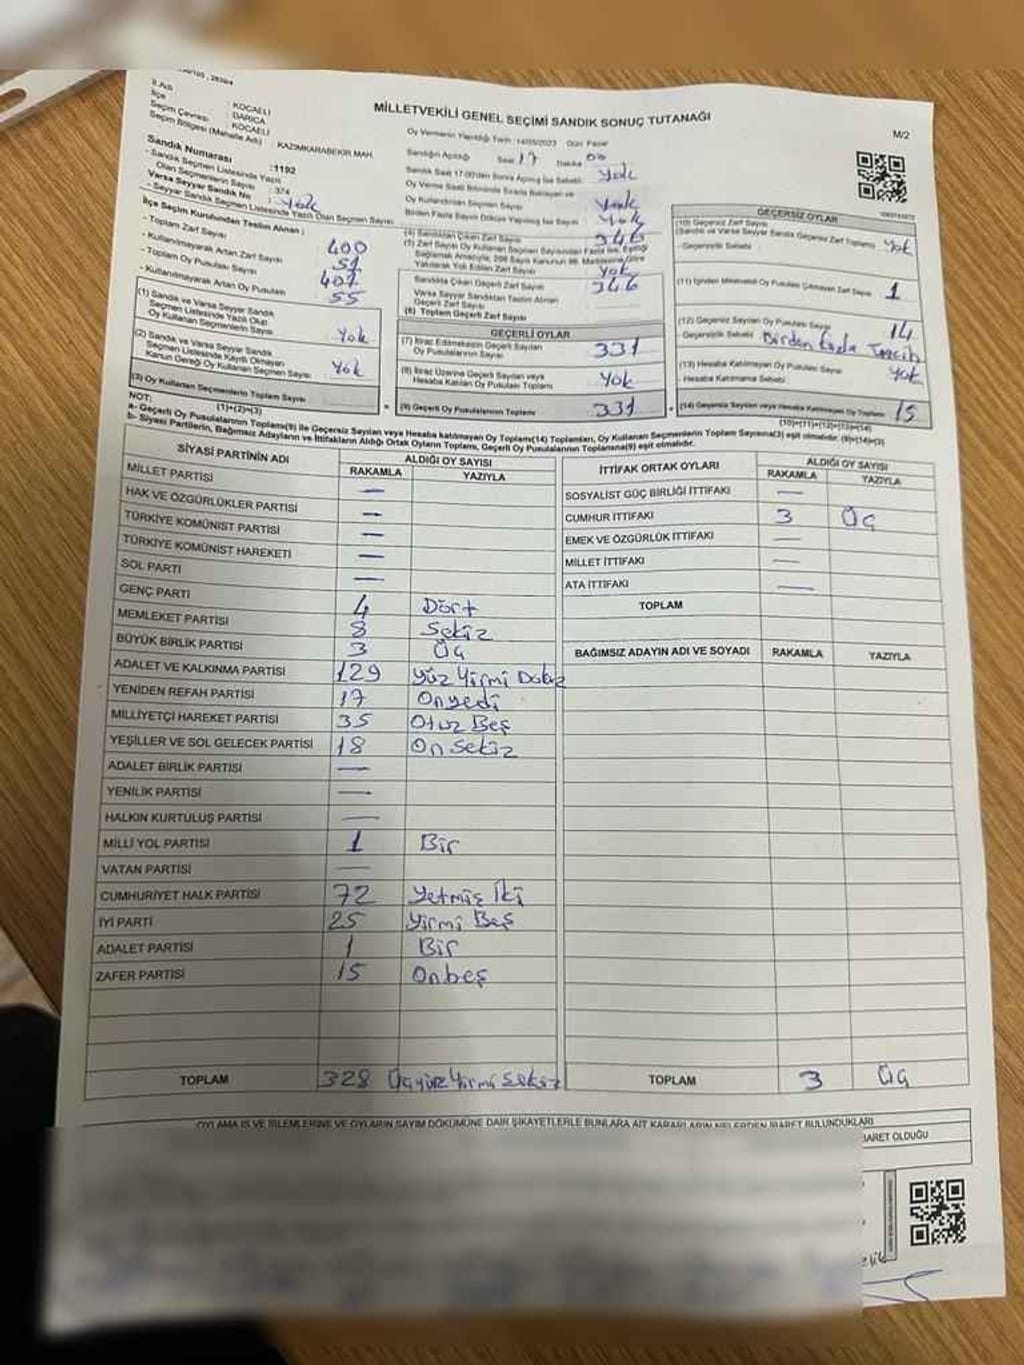 İl Adı : KOCAELİ
İlçe : DARICA
Seçim Çevresi : KOCAELİ
Seçim Bölgesi (Mahalle Adı) : KAZIMKARABEKİR MAH.
MİLLETVEKİLİ GENEL SEÇİMİ SANDIK SONUÇ TUTANAĞI
M/2
Oy Vermenin Yapıldığı Tarih : 14/05/2023 Gün Pazar
Sandığın Açıldığı Saat 17 Dakika 00
Sandık Saat 17.00'den Sonra Açılmış İse Sebebi: Yok
Oy Verme Saati Bitiminde Sırada Bekleyen ve
Oy Kullandırılan Seçmen Sayısı Yok
Birden Fazla Sayım Döküm Yapılmış İse Sayısı Yok
Sandık Numarası : 1192
- Sandık Seçmen Listesinde Yazılı
Olan Seçmenlerin Sayısı : 374
Varsa Seyyar Sandık No : Yok
- Seyyar Sandık Seçmen Listesinde Yazılı Olan Seçmen Sayısı
İlçe Seçim Kurulundan Teslim Alınan :
- Toplam Zarf Sayısı 400
- Kullanılmayarak Artan Zarf Sayısı 51
- Toplam Oy Pusulası Sayısı 401
- Kullanılmayarak Artan Oy Pusulası 55
(1) Sandık ve Varsa Seyyar Sandık
Seçmen Listesinde Yazılı Olup
Oy Kullanan Seçmenlerin Sayısı Yok
(2) Sandık ve Varsa Seyyar Sandık
Seçmen Listesinde Kayıtlı Olmayan
Kanun Gereği Oy Kullanan Seçmen Sayısı Yok
(3) Oy Kullanan Seçmenlerin Toplam Sayısı
(1)+(2)=(3)
(4) Sandıktan Çıkan Zarf Sayısı 346
(5) Zarf Sayısı Oy Kullanan Seçmen Sayısından Fazla İse, Eşitliği
Sağlamak Amacıyla, 298 Sayılı Kanunun 98. Maddesine Göre
Yakılarak Yok Edilen Zarf Sayısı Yok
Sandıkta Çıkan Geçerli Zarf Sayısı 346
Varsa Seyyar Sandıktan Teslim Alınan
Geçerli Zarf Sayısı
(6) Toplam Geçerli Zarf Sayısı
GEÇERLİ OYLAR
(7) İtiraz Edilmeksizin Geçerli Sayılan
Oy Pusulalarının Sayısı 331
(8) İtiraz Üzerine Geçerli Sayılan veya
Hesaba Katılan Oy Pusulası Toplamı Yok
(9) Geçerli Oy Pusulalarının Toplamı 331
GEÇERSİZ OYLAR
(10) Geçersiz Zarf Sayısı
(Sandık ve Varsa Seyyar Sandık Geçersiz Zarf Toplamı) Yok
- Geçersizlik Sebebi :
(11) İçinden Milletvekili Oy Pusulası Çıkmayan Zarf Sayısı 1
(12) Geçersiz Sayılan Oy Pusulası Sayısı 14
- Geçersizlik Sebebi : Birden Fazla Tercih
(13) Hesaba Katılmayan Oy Pusulası Sayısı Yok
- Hesaba Katılmama Sebebi :
(14) Geçersiz Sayılan veya Hesaba Katılmayan Oy Pusulası Toplamı 15
(10)+(11)+(12)+(13)=(14)
NOT:
a- Geçerli Oy Pusulalarının Toplamı(9) ile Geçersiz Sayılan veya Hesaba katılmayan Oy Pusulası Toplamı(14) Toplamları, Oy Kullanan Seçmenlerin Toplam Sayısına(3) eşit olmalıdır. (9)+(14)=(3)
b- Siyasi Partilerin, Bağımsız Adayların ve İttifakların Aldığı Ortak Oyların Toplamı, Geçerli Oy Pusulalarının Toplamına(9) eşit olmalıdır.
SİYASİ PARTİNİN ADI ALDIĞI OY SAYISI
RAKAMLA YAZIYLA
MİLLET PARTİSİ —
HAK VE ÖZGÜRLÜKLER PARTİSİ —
TÜRKİYE KOMÜNİST PARTİSİ —
TÜRKİYE KOMÜNİST HAREKETİ —
SOL PARTİ —
GENÇ PARTİ 4 Dört
MEMLEKET PARTİSİ 8 Sekiz
BÜYÜK BİRLİK PARTİSİ 3 Üç
ADALET VE KALKINMA PARTİSİ 129 Yüz Yirmi Dokuz
YENİDEN REFAH PARTİSİ 17 Onyedi
MİLLİYETÇİ HAREKET PARTİSİ 35 Otuz Beş
YEŞİLLER VE SOL GELECEK PARTİSİ 18 On Sekiz
ADALET BİRLİK PARTİSİ —
YENİLİK PARTİSİ —
HALKIN KURTULUŞ PARTİSİ —
MİLLİ YOL PARTİSİ 1 Bir
VATAN PARTİSİ —
CUMHURİYET HALK PARTİSİ 72 Yetmiş İki
İYİ PARTİ 25 Yirmi Beş
ADALET PARTİSİ 1 Bir
ZAFER PARTİSİ 15 Onbeş
TOPLAM 328 Üçyüz Yirmi Sekiz
İTTİFAK ORTAK OYLARI ALDIĞI OY SAYISI
RAKAMLA YAZIYLA
SOSYALİST GÜÇ BİRLİĞİ İTTİFAKI —
CUMHUR İTTİFAKI 3 Üç
EMEK VE ÖZGÜRLÜK İTTİFAKI —
MİLLET İTTİFAKI —
ATA İTTİFAKI —
TOPLAM
BAĞIMSIZ ADAYIN ADI VE SOYADI RAKAMLA YAZIYLA
TOPLAM 3 Üç
OYLAMA İŞ VE İŞLEMLERİNE VE OYLARIN SAYIM DÖKÜMÜNE DAİR ŞİKAYETLERLE BUNLARA AİT KARARLARIN NELERDEN İBARET BULUNDUKLARI
İBARET OLDUĞU